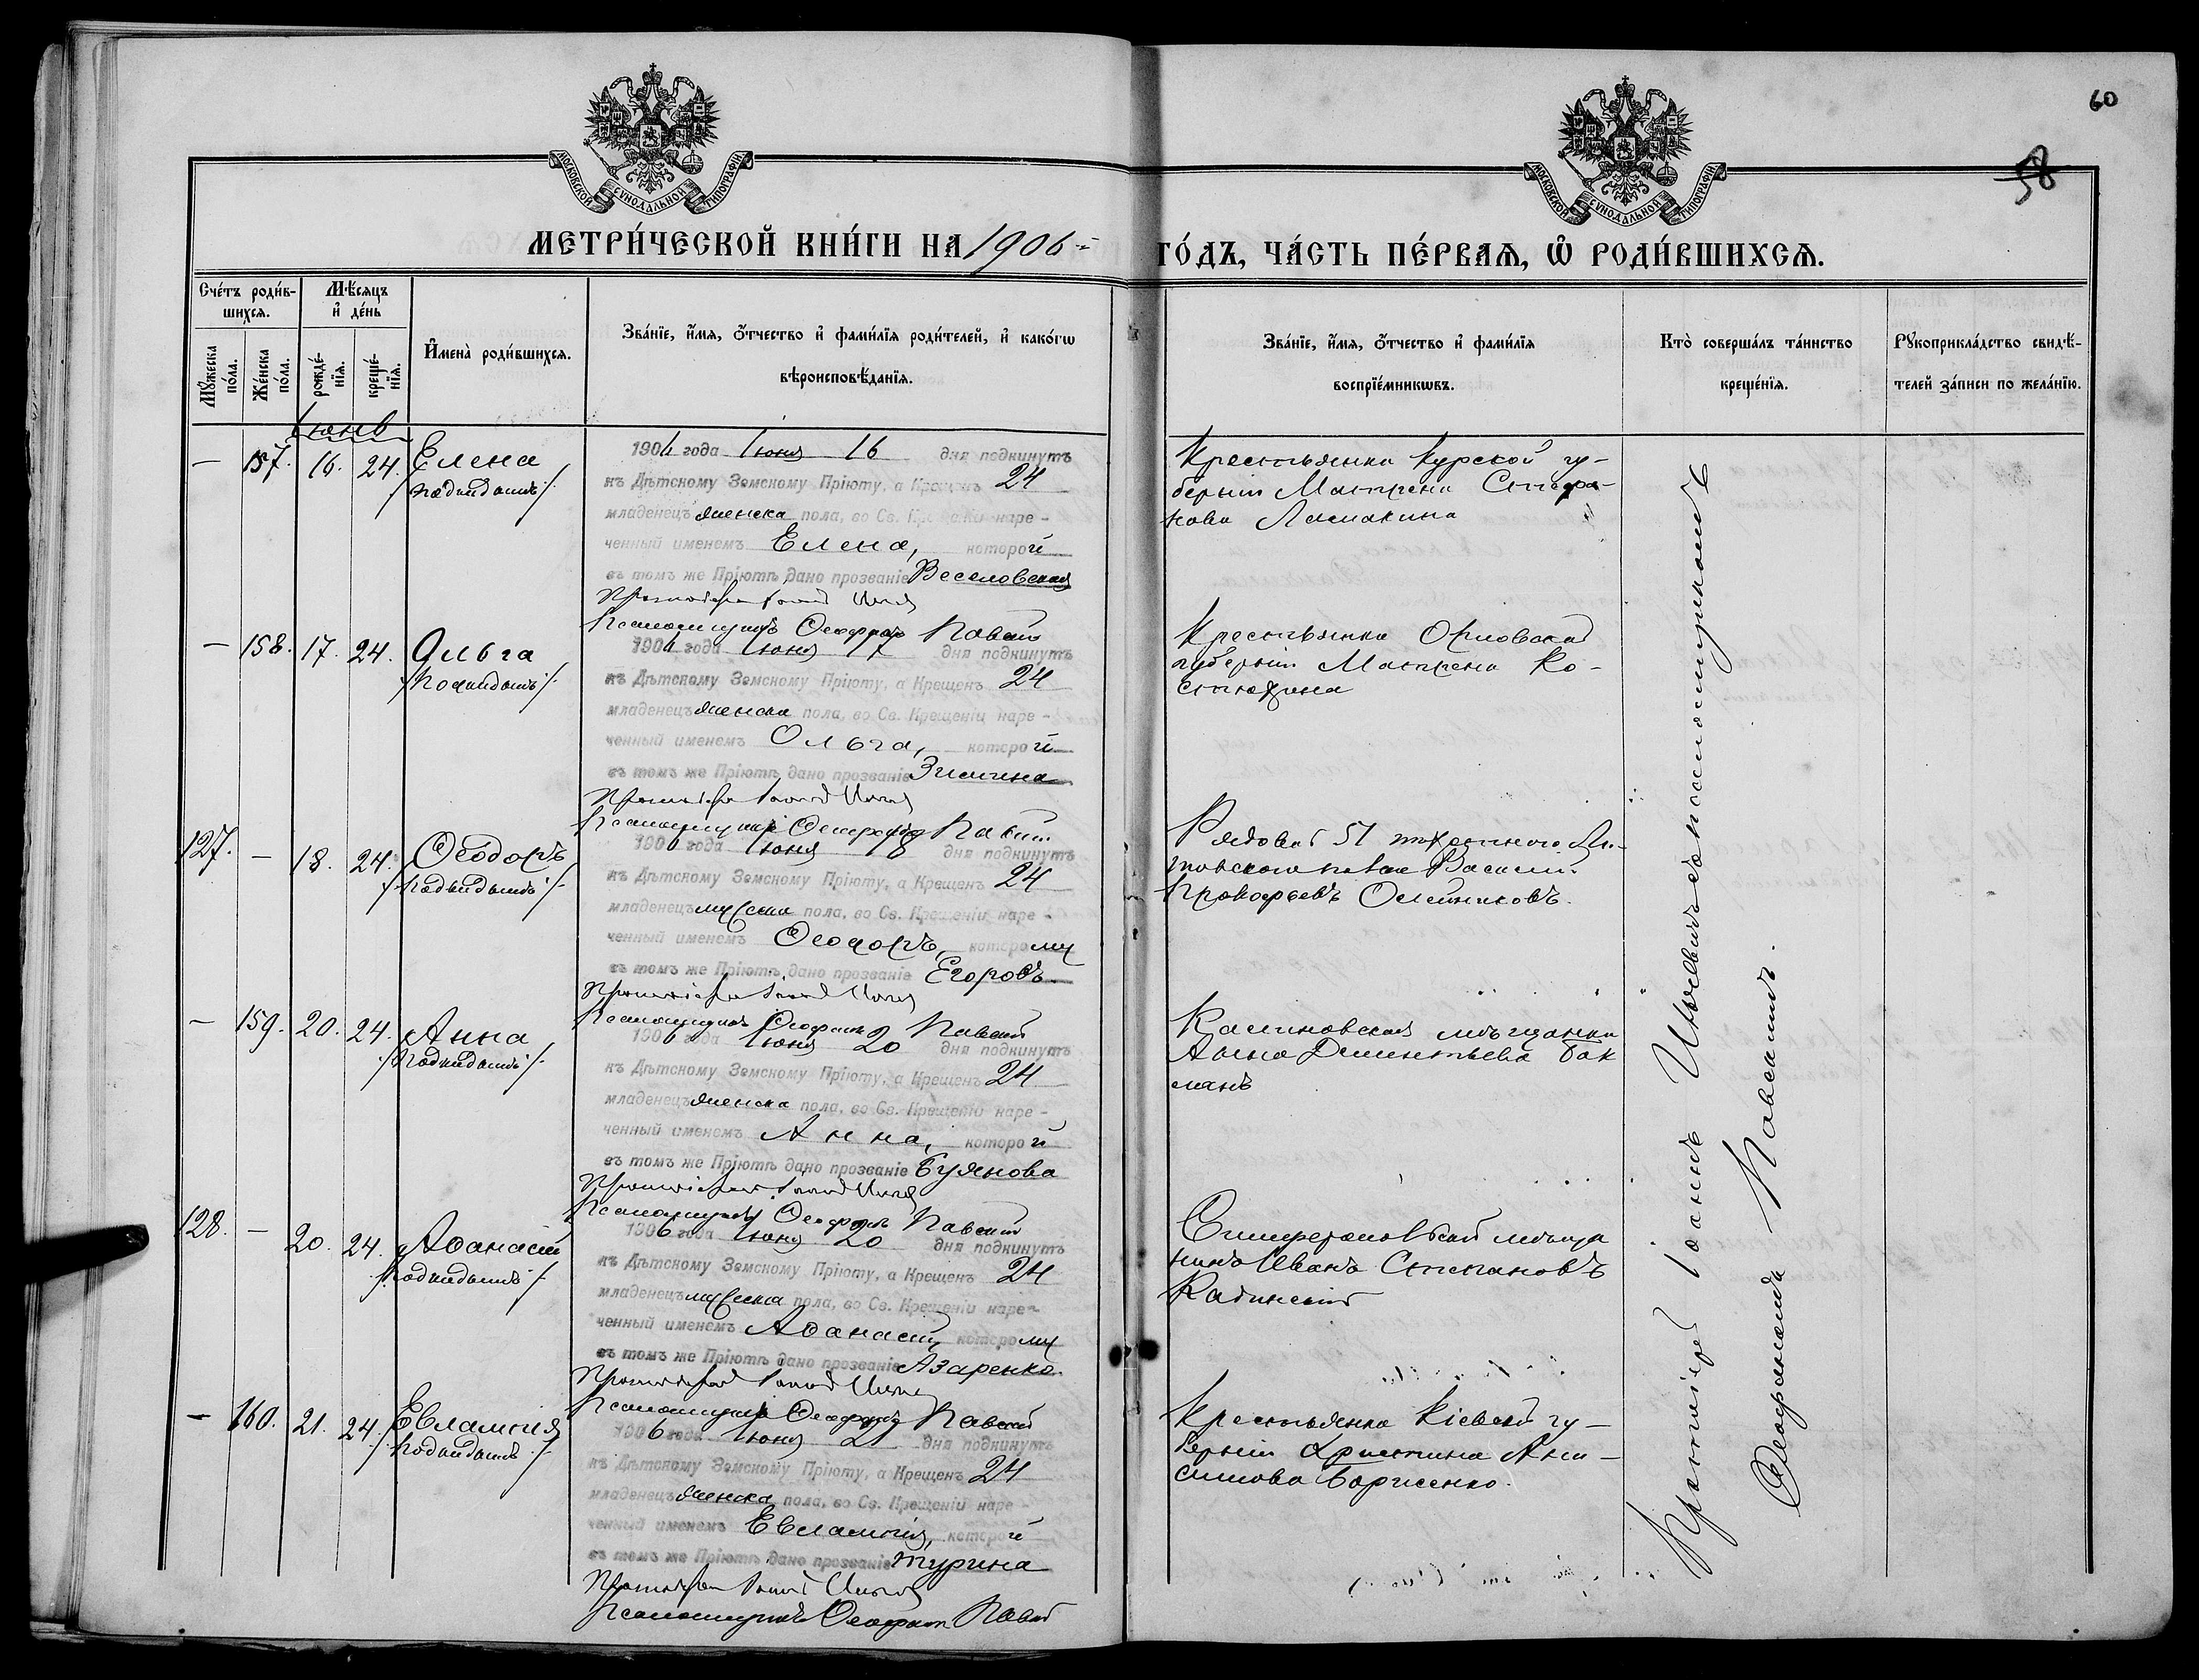 60
58
МОСКОВСКОЙ СѴНОДАЛЬНОЙ ТИПОГРАФІИ
МОСКОВСКОЙ СѴНОДАЛЬНОЙ ТИПОГРАФІИ
МЕТРИ́ЧЕСКОЙ КНИ́ГИ НА 1906
ГО́ДЪ, ЧА́СТЬ ПЕ́РВАѦ, Ѽ РОДИ́ВШИХСѦ.
Сче́тъ роди́в-
шихсѧ.
Мѣ́сѧцъ
и҆ де́нь
Мꙋ́жеска
по́ла.
Же́нска
по́ла.
рожде́-
нїѧ.
креще́-
нїѧ.
И҆мена̀ роди́вшихсѧ.
Зва́нїе, и҆́мѧ, ѻ҆́тчество и҆ фами́лїѧ роди́телей, и҆ како́гѡ
вѣроисповѣ́данїѧ.
Зва́нїе, и҆́мѧ, ѻ҆́тчество и҆ фами́лїѧ
воспрїе́мникѡвъ.
Кто̀ соверша́лъ та́инство
креще́нїѧ.
Рꙋкоприкла́дство свидѣ́-
телей за́писи по жела́нїю.
Іюнь
— 157. 16. 24. Елена
/подкидышъ/.
1906 года Іюня 16 дня подкинутъ
къ Дѣтскому Земскому Пріюту, а Крещенъ 24
младенецъ женска пола, во Св. Крещеніи наре-
ченный именемъ Елена, которой
въ томъ же Пріютѣ дано прозваніе Веселовская
Псаломщикъ Ѳеофанъ Павскій
Крестьянка Курской гу-
берніи Матрена Стефа-
нова Ламакина
— 158. 17. 24. Ольга
/подкидышъ/.
1906 года Іюня 17 дня подкинутъ
къ Дѣтскому Земскому Пріюту, а Крещенъ 24
младенецъ женска пола, во Св. Крещеніи наре-
ченный именемъ Ольга, которой
въ томъ же Пріютѣ дано прозваніе Зимина
Псаломщикъ Ѳеофанъ Павскій
Крестьянка Орловской
губерніи Матрена Ко-
стюхина
127. — 18. 24. Ѳеодоръ
/подкидышъ/.
1906 года Іюня 18 дня подкинутъ
къ Дѣтскому Земскому Пріюту, а Крещенъ 24
младенецъ мужска пола, во Св. Крещеніи наре-
ченный именемъ Ѳеодоръ, которому
въ томъ же Пріютѣ дано прозваніе Егоровъ
Псаломщикъ Ѳеофанъ Павскій
Рядовой 51 пѣхотнаго Ли-
товскаго полка Василій
Прокофьевъ Олейниковъ.
— 159. 20. 24. Анна
/подкидышъ/.
1906 года Іюня 20 дня подкинутъ
къ Дѣтскому Земскому Пріюту, а Крещенъ 24
младенецъ женска пола, во Св. Крещеніи наре-
ченный именемъ Анна, которой
въ томъ же Пріютѣ дано прозваніе Буянова
Псаломщикъ Ѳеофанъ Павскій
мѣщанка
Анна Дементьева Бак
манъ
128. — 20. 24. Аѳанасій
/подкидышъ/.
1906 года Іюня 20 дня подкинутъ
къ Дѣтскому Земскому Пріюту, а Крещенъ 24
младенецъ мужска пола, во Св. Крещеніи наре-
ченный именемъ Аѳанасій, которому
въ томъ же Пріютѣ дано прозваніе Азаренко
Псаломщикъ Ѳеофанъ Павскій
Симферопольскій мѣща
нинъ Иванъ Степановъ
— 160. 21. 24. Евлампія
/подкидышъ/.
1906 года Іюня 21 дня подкинутъ
къ Дѣтскому Земскому Пріюту, а Крещенъ 24
младенецъ женска пола, во Св. Крещеніи наре-
ченный именемъ Евлампія, которой
въ томъ же Пріютѣ дано прозваніе Турина
Псаломщикъ Ѳеофанъ Павскій
Крестьянка Кіевской гу-
берніи Христина Ани-
симова Борисенко.
Протоіерей Іоаннъ съ псаломщикомъ
Ѳеофаномъ Павскимъ.